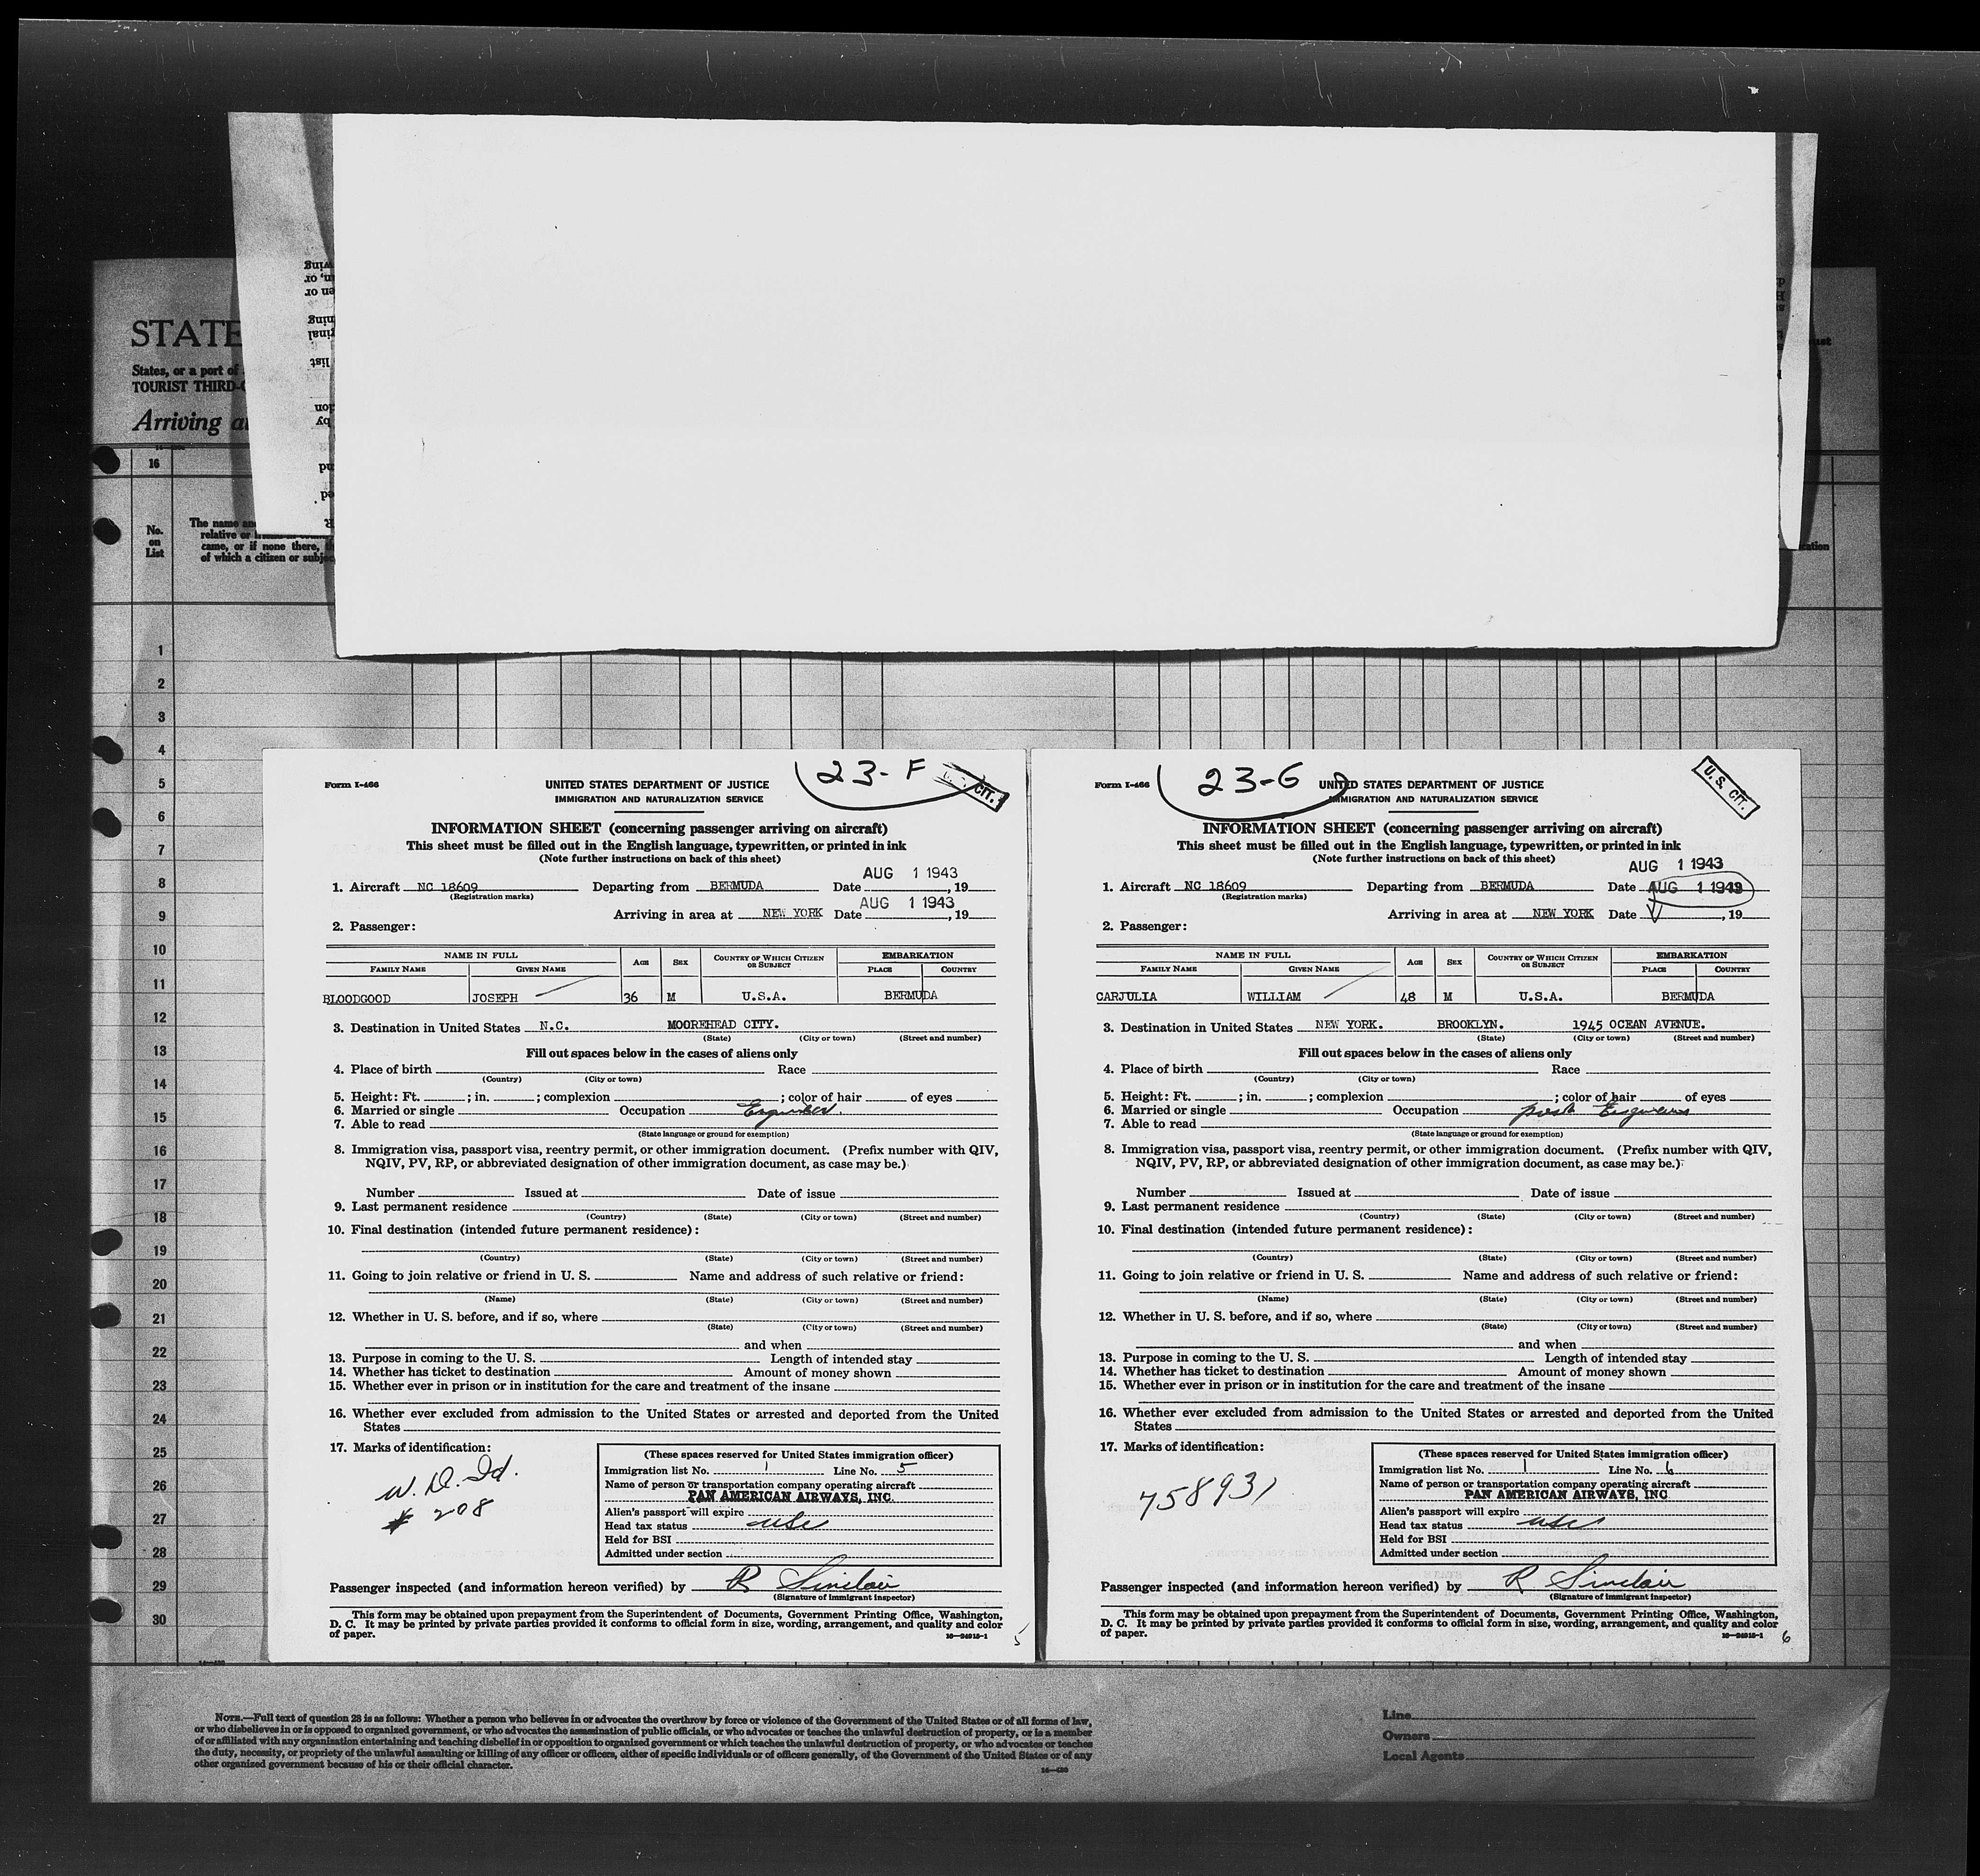 wing
n, or
en or
ning
ginal
list
tion
by
nd
ed
STATE
States, or a port of
TOURIST THIRD-
Arriving
16
No.
on
List
The name and
relative or
came, or if none there,
of which a citizen or subject
1
2
3
4
5
6
7
8
9
10
11
12
13
14
15
16
17
18
19
20
21
22
23
24
25
26
27
28
29
30
23-F
CIT.
Form I-466
UNITED STATES DEPARTMENT OF JUSTICE
IMMIGRATION AND NATURALIZATION SERVICE
INFORMATION SHEET (concerning passenger arriving on aircraft)
This sheet must be filled out in the English language, typewritten, or printed in ink
(Note further instructions on back of this sheet)
AUG 1 1943
1. Aircraft NC 18609 Departing from BERMUDA Date , 19
(Registration marks)
AUG 1 1943
Arriving in area at NEW YORK Date , 19
2. Passenger:
NAME IN FULL AGE SEX COUNTRY OF WHICH CITIZEN OR SUBJECT EMBARKATION
FAMILY NAME GIVEN NAME PLACE COUNTRY
BLOODGOOD JOSEPH 36 M U.S.A. BERMUDA
3. Destination in United States N.C. MOOREHEAD CITY.
(State) (City or town) (Street and number)
Fill out spaces below in the cases of aliens only
4. Place of birth Race
(Country) (City or town)
5. Height: Ft. ; in. ; complexion ; color of hair of eyes
6. Married or single Occupation
7. Able to read
(State language or ground for exemption)
8. Immigration visa, passport visa, reentry permit, or other immigration document. (Prefix number with QIV,
NQIV, PV, RP, or abbreviated designation of other immigration document, as case may be.)
Number Issued at Date of issue
9. Last permanent residence
(Country) (State) (City or town) (Street and number)
10. Final destination (intended future permanent residence):
(Country) (State) (City or town) (Street and number)
11. Going to join relative or friend in U. S. Name and address of such relative or friend:
(Name) (State) (City or town) (Street and number)
12. Whether in U. S. before, and if so, where
(State) (City or town) (Street and number)
and when
13. Purpose in coming to the U. S. Length of intended stay
14. Whether has ticket to destination Amount of money shown
15. Whether ever in prison or in institution for the care and treatment of the insane
16. Whether ever excluded from admission to the United States or arrested and deported from the United
States
17. Marks of identification:
W. D. Id.
# 208
(These spaces reserved for United States immigration officer)
Immigration list No. 1 Line No. 5
Name of person or transportation company operating aircraft
PAN AMERICAN AIRWAYS, INC.
Alien's passport will expire
Head tax status usc
Held for BSI
Admitted under section
Passenger inspected (and information hereon verified) by R Sinclair
(Signature of immigrant inspector)
This form may be obtained upon prepayment from the Superintendent of Documents, Government Printing Office, Washington,
D. C. It may be printed by private parties provided it conforms to official form in size, wording, arrangement, and quality and color
of paper. 16—24915-1
5
23-G
U. S. CIT.
Form I-466
UNITED STATES DEPARTMENT OF JUSTICE
IMMIGRATION AND NATURALIZATION SERVICE
INFORMATION SHEET (concerning passenger arriving on aircraft)
This sheet must be filled out in the English language, typewritten, or printed in ink
(Note further instructions on back of this sheet)
AUG 1 1943
1. Aircraft NC 18609 Departing from BERMUDA Date AUG 1 1943
(Registration marks)
Arriving in area at NEW YORK Date , 19
2. Passenger:
NAME IN FULL AGE SEX COUNTRY OF WHICH CITIZEN OR SUBJECT EMBARKATION
FAMILY NAME GIVEN NAME PLACE COUNTRY
CARJULIA WILLIAM 48 M U.S.A. BERMUDA
3. Destination in United States NEW YORK. BROOKLYN. 1945 OCEAN AVENUE.
(State) (City or town) (Street and number)
Fill out spaces below in the cases of aliens only
4. Place of birth Race
(Country) (City or town)
5. Height: Ft. ; in. ; complexion ; color of hair of eyes
6. Married or single Occupation
7. Able to read
(State language or ground for exemption)
8. Immigration visa, passport visa, reentry permit, or other immigration document. (Prefix number with QIV,
NQIV, PV, RP, or abbreviated designation of other immigration document, as case may be.)
Number Issued at Date of issue
9. Last permanent residence
(Country) (State) (City or town) (Street and number)
10. Final destination (intended future permanent residence):
(Country) (State) (City or town) (Street and number)
11. Going to join relative or friend in U. S. Name and address of such relative or friend:
(Name) (State) (City or town) (Street and number)
12. Whether in U. S. before, and if so, where
(State) (City or town) (Street and number)
and when
13. Purpose in coming to the U. S. Length of intended stay
14. Whether has ticket to destination Amount of money shown
15. Whether ever in prison or in institution for the care and treatment of the insane
16. Whether ever excluded from admission to the United States or arrested and deported from the United
States
17. Marks of identification:
758931
(These spaces reserved for United States immigration officer)
Immigration list No. 1 Line No. 6
Name of person or transportation company operating aircraft
PAN AMERICAN AIRWAYS, INC
Alien's passport will expire
Head tax status usc
Held for BSI
Admitted under section
Passenger inspected (and information hereon verified) by R Sinclair
(Signature of immigrant inspector)
This form may be obtained upon prepayment from the Superintendent of Documents, Government Printing Office, Washington,
D. C. It may be printed by private parties provided it conforms to official form in size, wording, arrangement, and quality and color
of paper. 16—24915-1
6
NOTE.—Full text of question 28 is as follows: Whether a person who believes in or advocates the overthrow by force or violence of the Government of the United States or of all forms of law,
or who disbelieves in or is opposed to organized government, or who advocates the assassination of public officials, or who advocates or teaches the unlawful destruction of property, or is a member
of or affiliated with any organization entertaining and teaching disbelief in or opposition to organized government or which teaches the unlawful destruction of property, or who advocates or teaches
the duty, necessity, or propriety of the unlawful assaulting or killing of any officer or officers, either of specific individuals or of officers generally, of the Government of the United States or of any
other organized government because of his or their official character.
14—430
Line
Owners
Local Agents